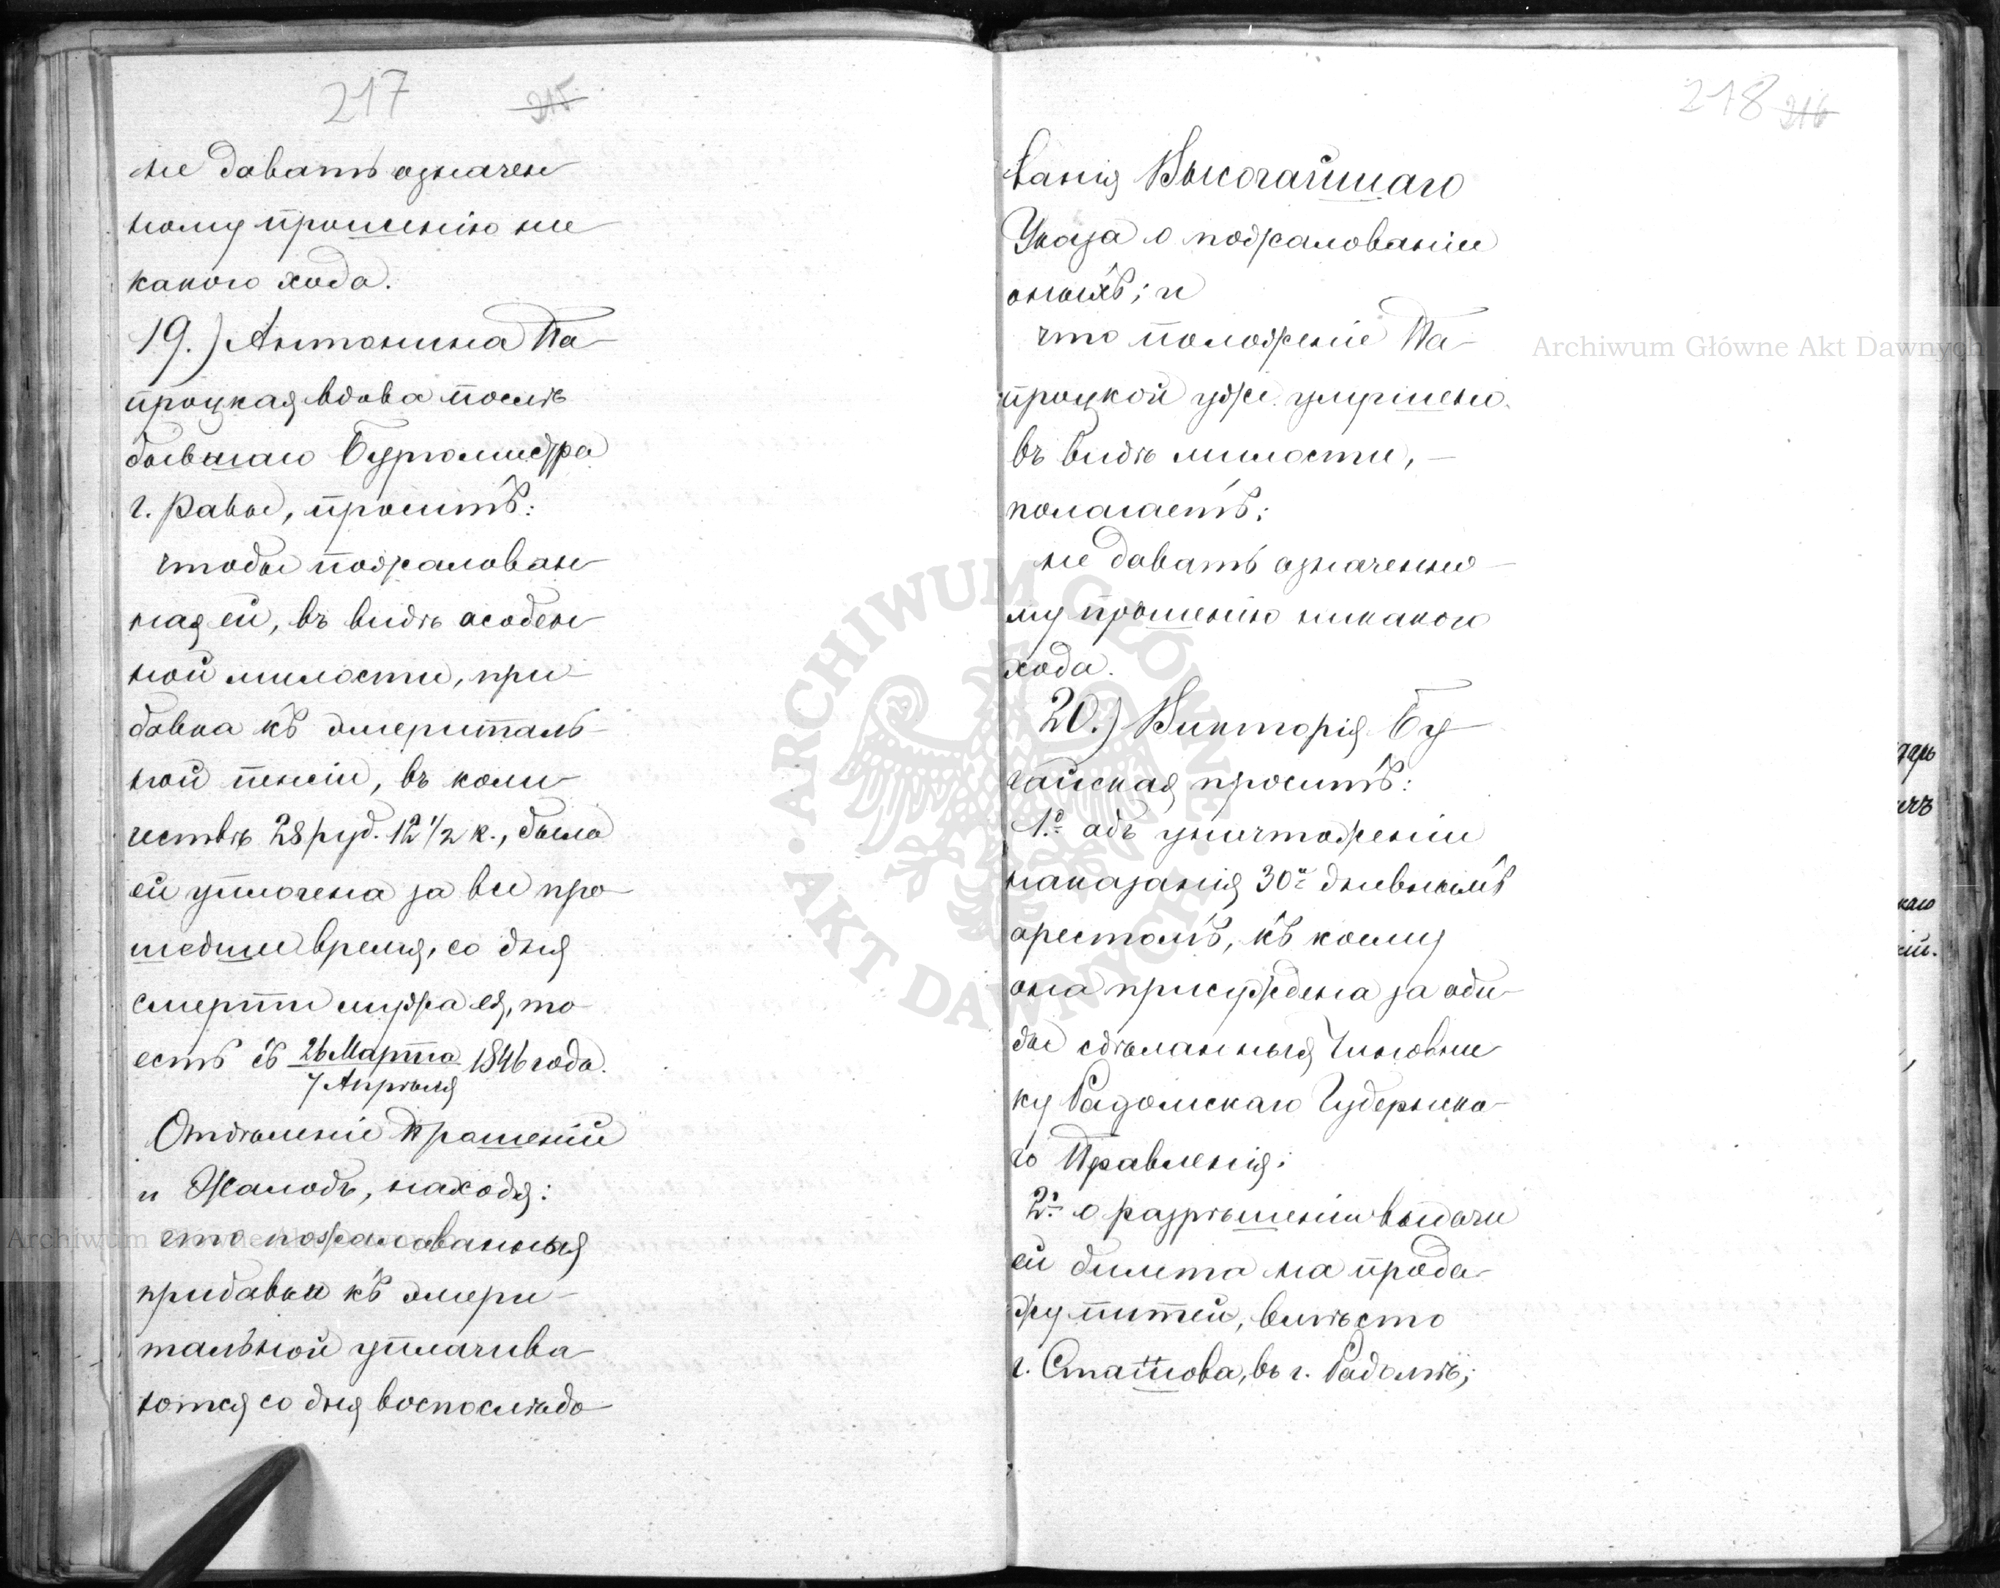 217 215
не давать означен
ному прошенію ни
какого хода.
19.) Антонина Па-
процкая вдова послѣ
бывшаго Бургомистра
г. Равы, проситъ:
чтобы пожалован
ная ей, въ видѣ особен
ной милости, при-
бавка къ эмериталь-
ной пенсіи, въ коли-
чествѣ 28 руб. 12 1/2 к., была
ей уплочена за все про-
шедшее время, со дня
смерти мужа ея, то-
есть съ 26 Марта 1846 года.
7 Апрѣля
Отдѣленіе Прошеній
и Жалобъ, находя:
что пожалованныя
прибавки къ эмери-
тальной уплачива-
ются со дня воспослѣдо-
218 216
ванія Высочайшаго
Указа о пожалованіи
оныхъ; и
что положеніе Па-
процкой уже улучшено
въ видѣ милости, —
полагаетъ:
не давать означенно-
му прошенію никакого
хода.
20.) Викторія Бу-
чайская проситъ:
1.е объ уничтоженіи
наказанія 30и дневнымъ
арестомъ, къ коему
она присуждена за оби-
ды сдѣланныя Чиновни-
ку Радомскаго Губернска-
го Правленія;
2.е о разрѣшеніи выдачи
ей билета на прода-
жу питей, вмѣсто
г. Сташова, въ г. Радомѣ;
Archiwum Główne Akt Dawnych
ARCHIWUM GŁÓWNE AKT DAWNYCH